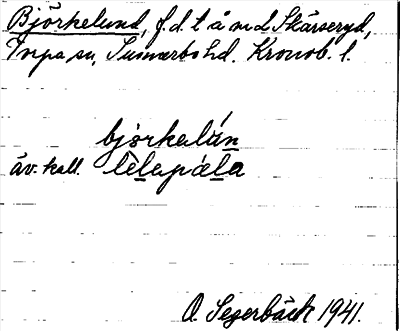 Björkelund, f.d. t å m L Skärseryd,
Torpa sn, Sunnerbo hd. Kronob. l.
björkalún
äv. kall. lèlapála
O. Segerbäck 1941.